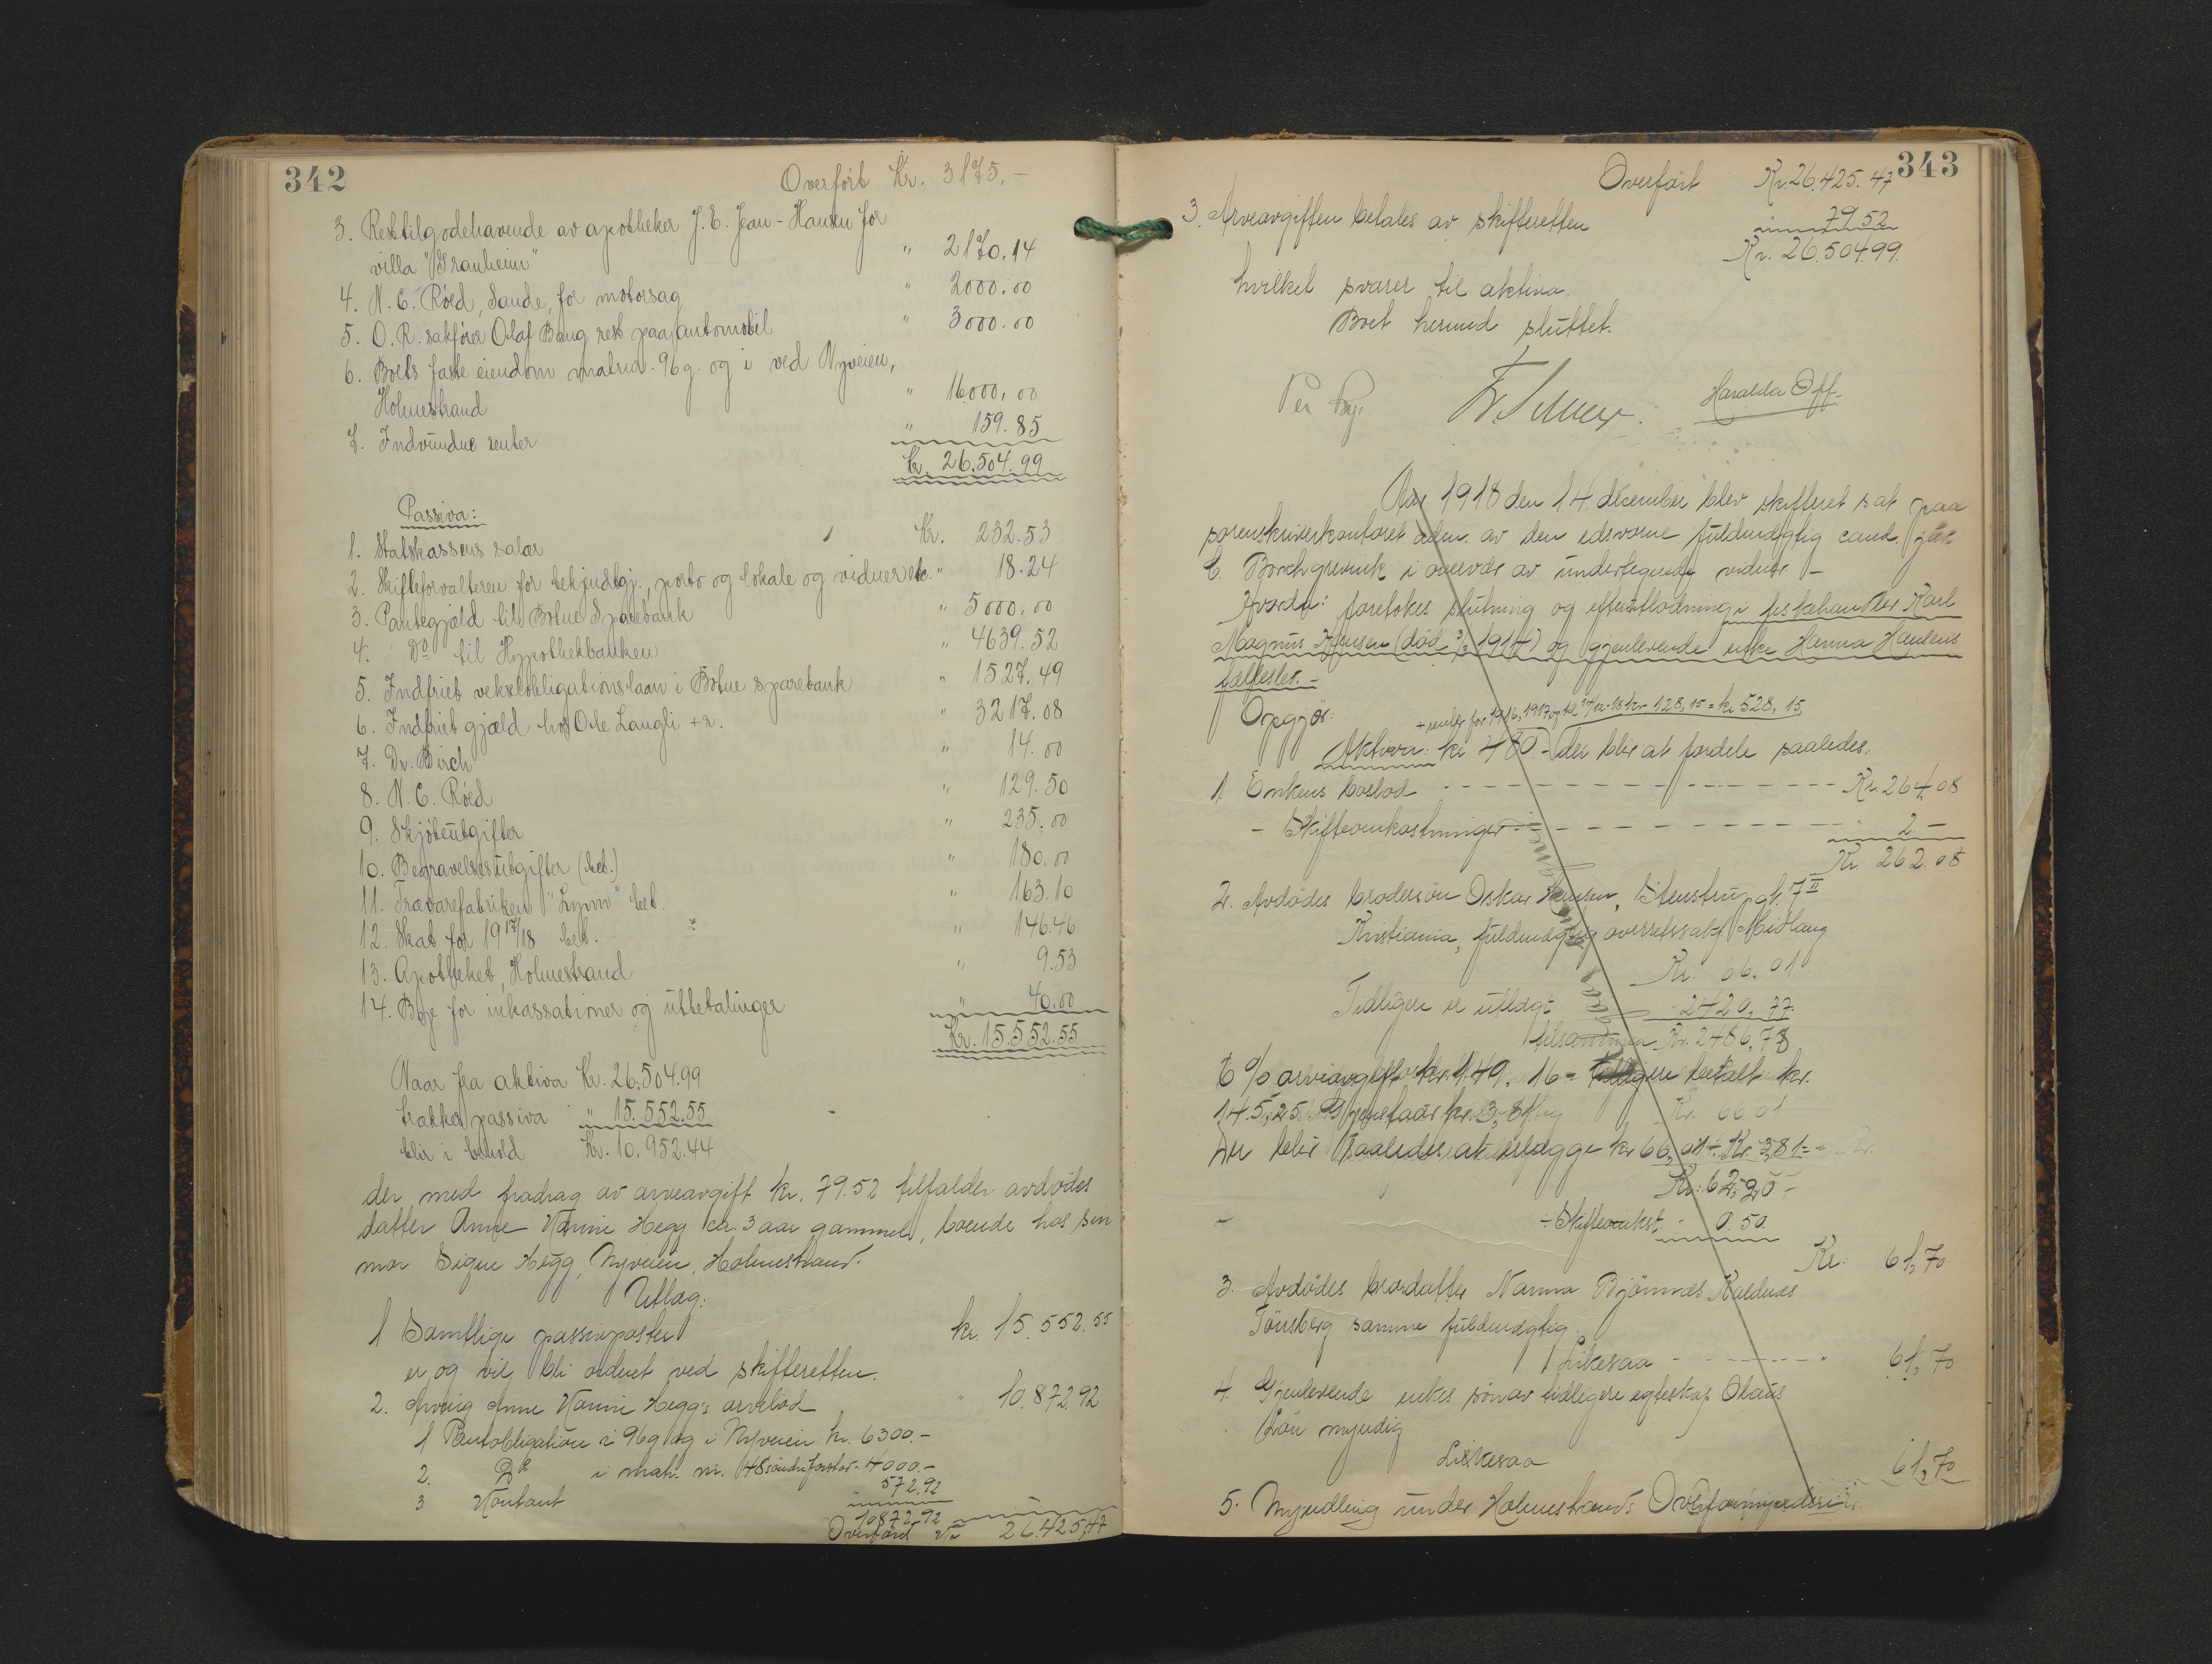 342
Overført Kr. 3175.-
3. Resttilgodehavende av apotheker J. E. Jean-Hansen for
villa "Granheim" " 2170.14
4. N. E. Röed, Sande, for motorsag " 2000.00
5. O. R. sakförer Olaf Bang rest paa automobil " 3000.00
6. Boets faste eiendom matrnr. 96 g. og i ved Nyveien,
Holmestrand " 16000.00
7. Indvundne renter " 159.85
Kr. 26.504.99
Passiva:
1. Statskassens salær Kr. 232.53
2. Skifteforvalteren for bekjendtgj., porto og lokale og vidner etc. " 18.24
3. Pantegjæld til Botne Sparebank " 5000.00
4. Do til Hypothekbanken " 4639.52
5. Indfriet vekselobligationslaan i Botne sparebank " 1527.49
6. Indfriet gjæld hos Ole Langli + r. " 3217.08
7. Dr. Birch " 14.00
8. N. E. Röed " 129.50
9. Skjöteutgifter " 235.00
10. Begravelsesutgifter (bet.) " 180.00
11. Trævarefabriken "Lynn" bet. " 163.10
12. Skat for 1917/18 bet. " 146.46
13. Apotheket, Holmestrand " 9.53
14. Bye for inkassationer og utbetalinger " 40.00
Kr. 15.552.55
Naar fra aktiva Kr. 26.504.99
trækkes passiva " 15.552.55
blir i behold Kr. 10.952.44
der med fradrag av arveavgift kr. 79.52 tilfalder avdödes
datter Anne Karine Hegg ca. 3 aar gammel, boende hos sin
mor Signe Hegg, Nyveien, Holmestrand.
Utlæg:
1 Samtlige passivposter kr. 15.552.55
er og vil bli ordnet ved skifteretten.
2. Arving Anne Karine Hegg's arvelod " 10.872.92
1 Pantobligation i 96 g og i Nyveien kr. 6300.-
2. Do i matr. nr. 48 söndre 4000.-
3 Kontant " 572.92
10872.92
Overført Kr 26.425,47
343
Overført Kr. 26.425.47
3. Arveavgiften betales av skifteretten " 79.52
Kr. 26.504.99.
hvilket svarer til aktiva.
Boet hermed sluttet.
Per Bye Haralda Off.
Aar 1918 den 14. december blev skifteret sat paa
sorenskriverkontoret adm. av den edsvorne fuldmægtig cand. jur.
C. Borchgrevink i overvær av undertegnede vidner -
Hvorda: foretokes slutning og efterutlodning i fiskehandler Karl
Magnus Hansen (død 3/3 1914) og gjenlevende enke Hanna Hansens
fællesbo. -
Opgjör: + renter for 1916, 1917 og til 14/12-18 kr 128,15 = kr 528,15,
Aktiva: kr 400 - der blir at fordele saaledes:
1. Enkens boslod Kr 264,08
- Skifteomkostninger " 2.-
Kr 262.08
2. Avdödes brodersön Oskar Hansen, Stenstrupgt. 7 II
Kristiania, fuldmægtig overretssakf. Midtlang
Kr. 66.01
Tidligere er utlagt - 2420.77
tilsammen Kr. 2486,78
6 % arveavgift kr. 149.16 - tidligere betalt kr.
145,25. Gjenstaar kr. 3,81 Kr. 66 01
Der blir saaledes at utlægge kr 66,01 ÷ Kr. 3,81 =
Kr: 62,20 -
÷ Skifteomkst. " 0.50.
Kr: 61,70
3. Avdödes brordatter Nanna Björnnes Kaldnes
Tönsberg samme fuldmægtig
Likesaa " 61,70
4. Gjenlevende enkes sön av tidligere egteskap Olaus
myndig
Likesaa 61,70
5. Myndling under Holmestrands Overformynderi